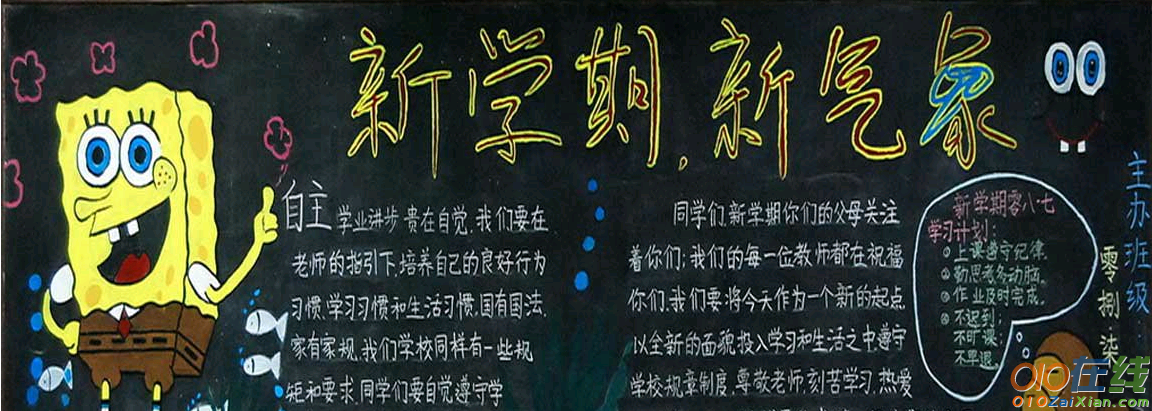 新学期,新气象
自主 学业进步,贵在自觉,我们要在
老师的指引下,培养自己的良好行为
习惯,学习习惯和生活习惯,国有国法,
家有家规,我们学校同样有一些规
矩和要求,同学们要自觉遵守学
同学们,新学期你们的父母关注
着你们;我们的每一位教师都在祝福
你们,我们要将今天作为一个新的起点
以全新的面貌投入学习和生活之中遵守
学校规章制度,尊敬老师,刻苦学习,热爱
新学期零八七
学习计划:
①上课遵守纪律.
②勤思考多动脑。
③作业及时完成。
④不迟到;
不旷课;
不早退。
主办班级:
零捌柒
010在线
010ZaiXian.com